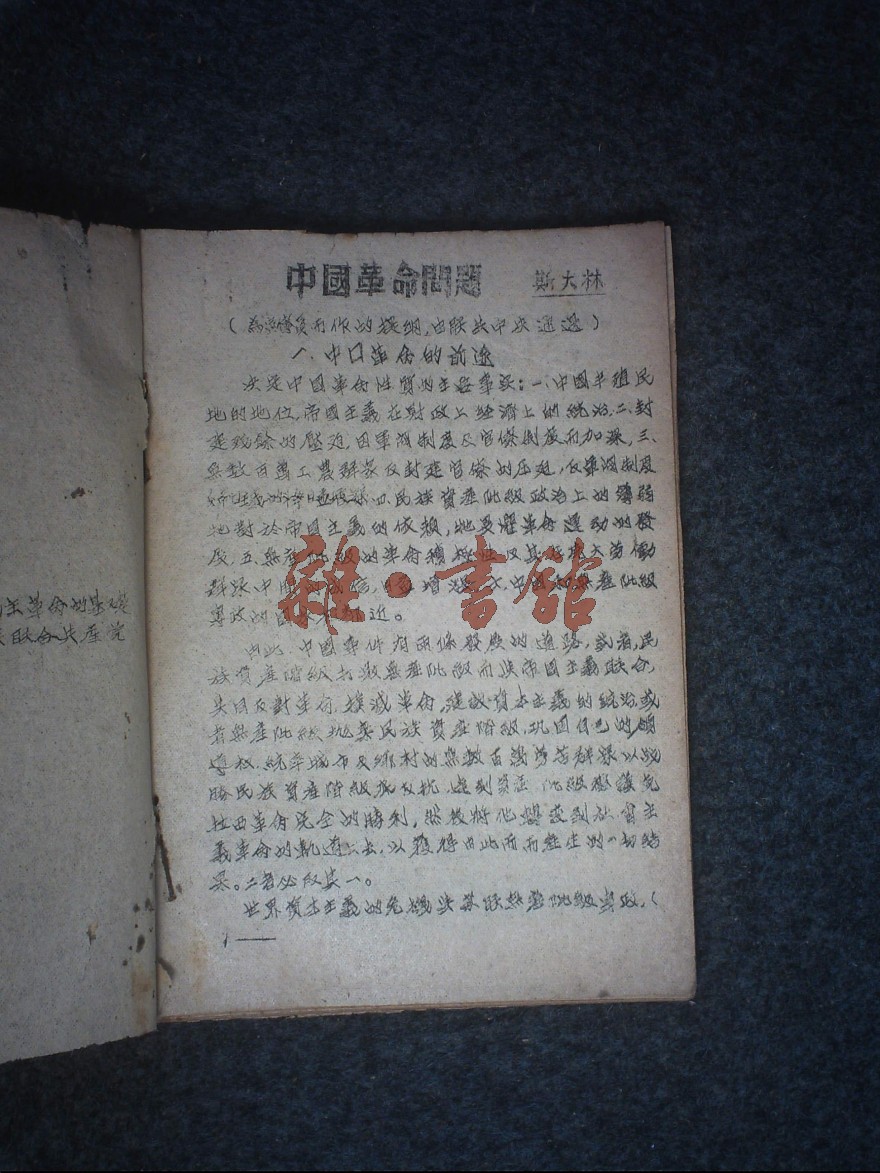 主革命的
联合共産党
中國革命問題 斯大林
(為宣傳員而作的提綱,由联共中央通过)
一、中囗革命的前途
决定中國革命性質的主要事実:一、中國半殖民
地的地位,帝國主義在財政上經濟上的統治、二、封
建残餘的壓迫,因軍閥制度及官僚制度而加深,三、
無数百萬工農群衆反封建官僚的压迫,反軍閥制度
四、民族資產阶級政治上的薄弱
地對於帝國主義的依賴,地畏懼革命運动的發
展,五、無產阶級的革命積極性及其在廣大劳働
群眾中 增 六、中國 無產阶級
專政的 近。
由此、中國事件有兩條發展的道路,或者民
族資產階級打敗無產阶級而與帝國主義联合,
共同反對革命, 滅革命, 資本主義的統治或
者無產阶級抛棄民族資產階級,巩固自己的領
導权,統率城市及鄉村的無数百萬劳苦群眾以战
勝民族資產階級 反抗, 資產阶級 獲
革命完全的勝利,然後将他轉变到社會主
義革命的軌道上去,以獲得由此而 產生的一切結
果。二者必取其一。
世界資本主義的危機 苏联無產阶級專政,(
1
雜·書館